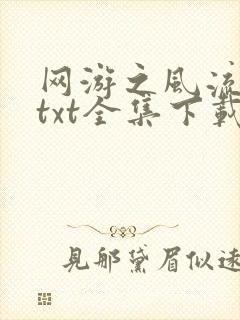 网游之风流
txt全集下载
見那黛眉似遠